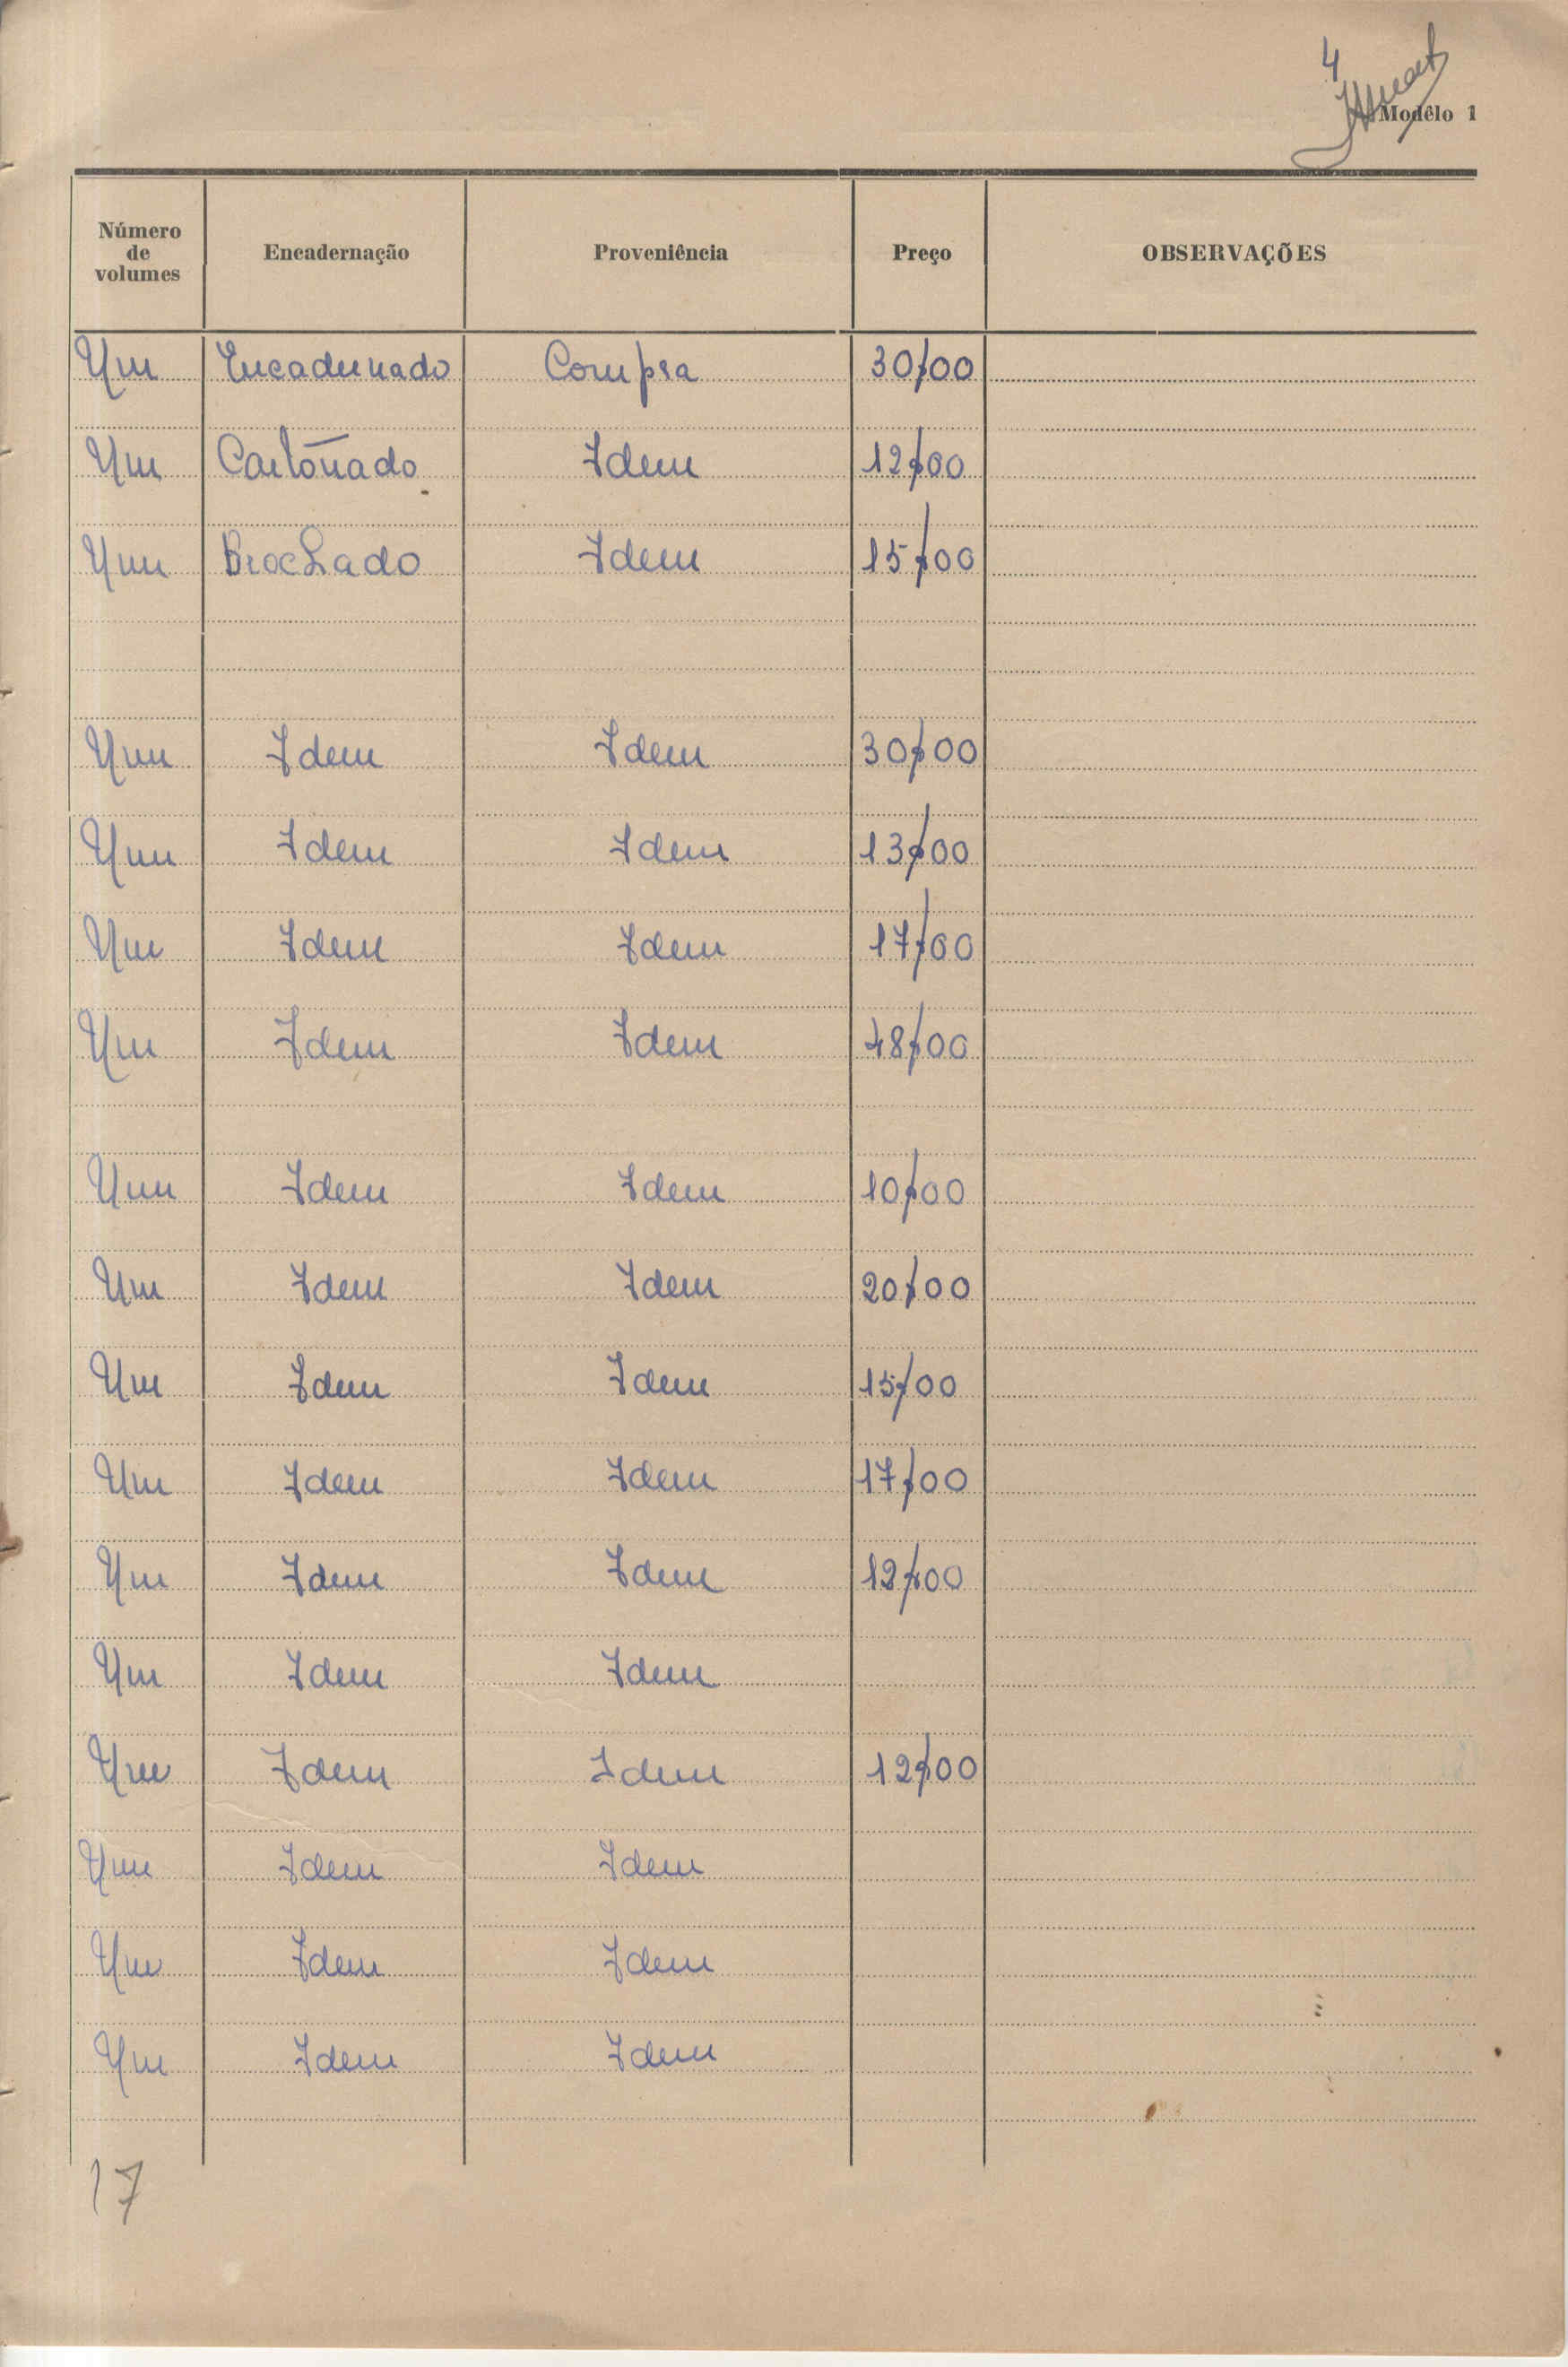 4
Modêlo 1
Número de volumes Encadernação Proveniência Preço OBSERVAÇÕES
Um Encadernado Compra 30$00
Um Cartonado Idem 12$00
Um Brochado Idem 15$00
Um Idem Idem 30$00
Um Idem Idem 13$00
Um Idem Idem 17$00
Um Idem Idem 48$00
Um Idem Idem 10$00
Um Idem Idem 20$00
Um Idem Idem 15$00
Um Idem Idem 17$00
Um Idem Idem 12$00
Um Idem Idem
Um Idem Idem 12$00
Um Idem Idem
Um Idem Idem
Um Idem Idem
17